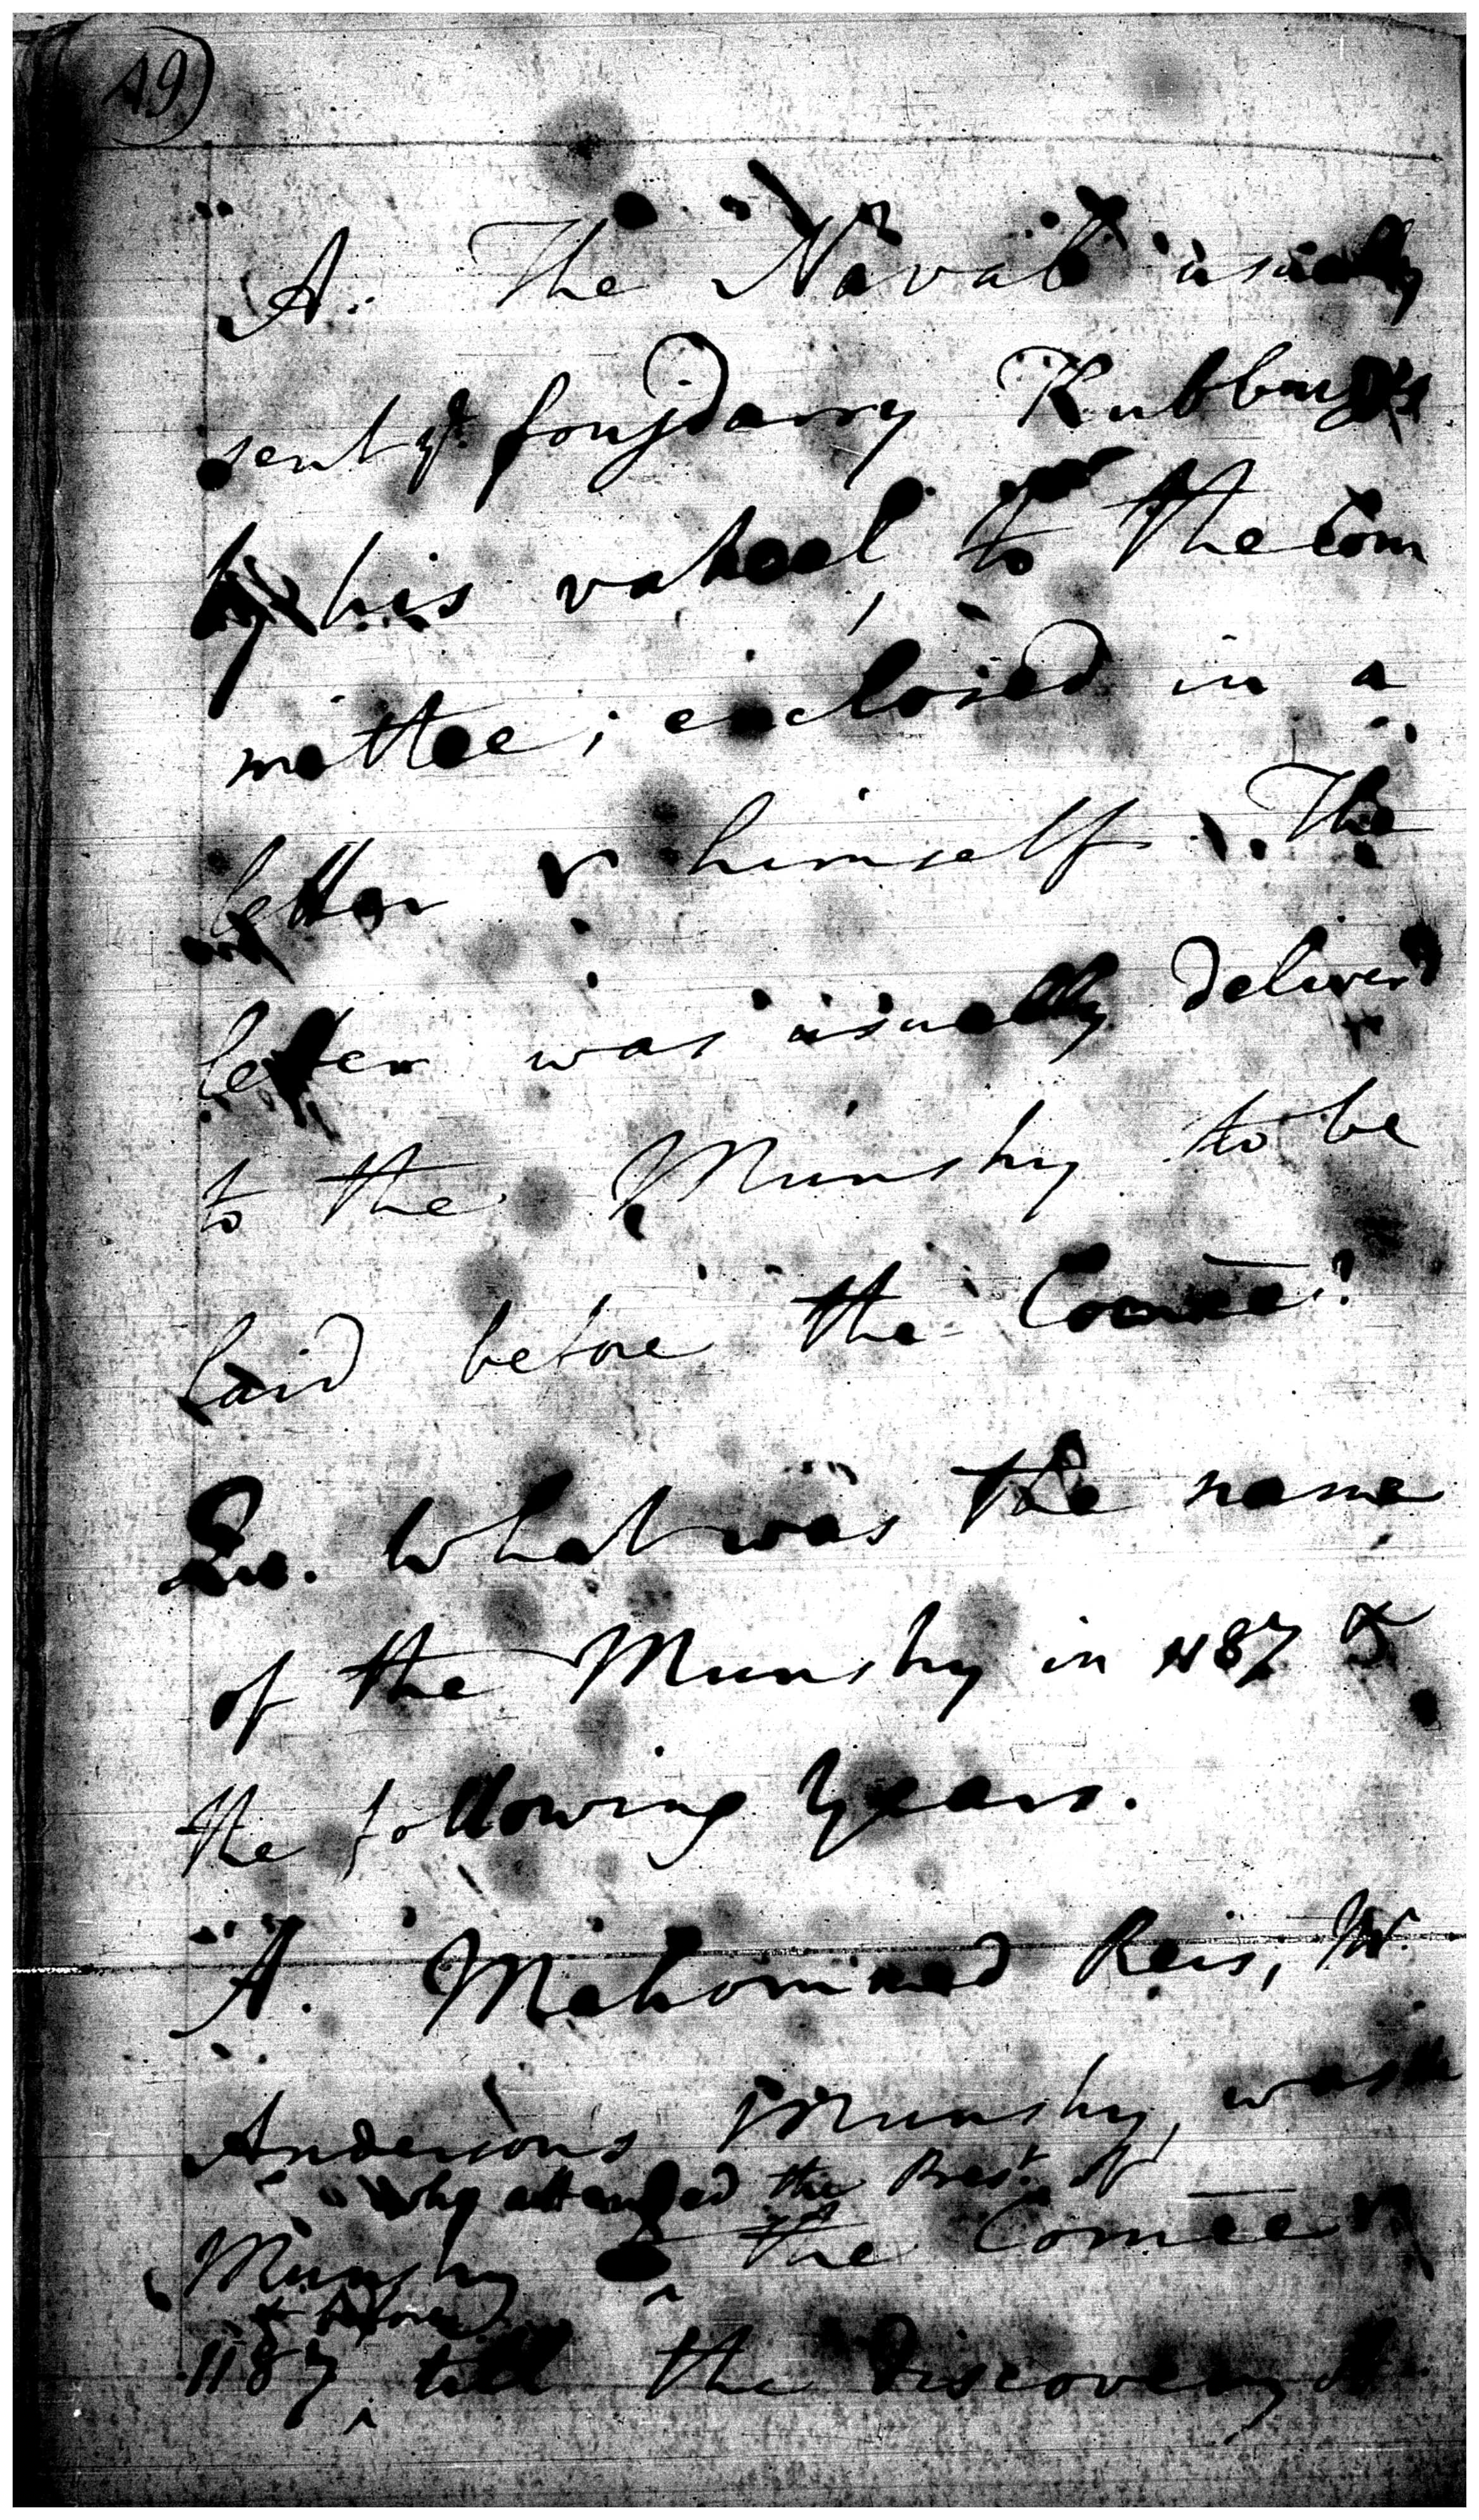 49)
A. The Navab usually
sent ye. foujdarry Rubbengs
by his vakeel, to the Com
mittee; enclosed in a
letter himself. The
letter was usually deliver'd
to the Munshy to be
laid before the Comee.
Qu. What was the name
of the Munshy in 1187 &
the following Years.
A. Mahommed Reis, Mr.
Andersons Munshy, was
who attended the Prest. of
Munshy the Comee
& before
1187 till the Discovery of